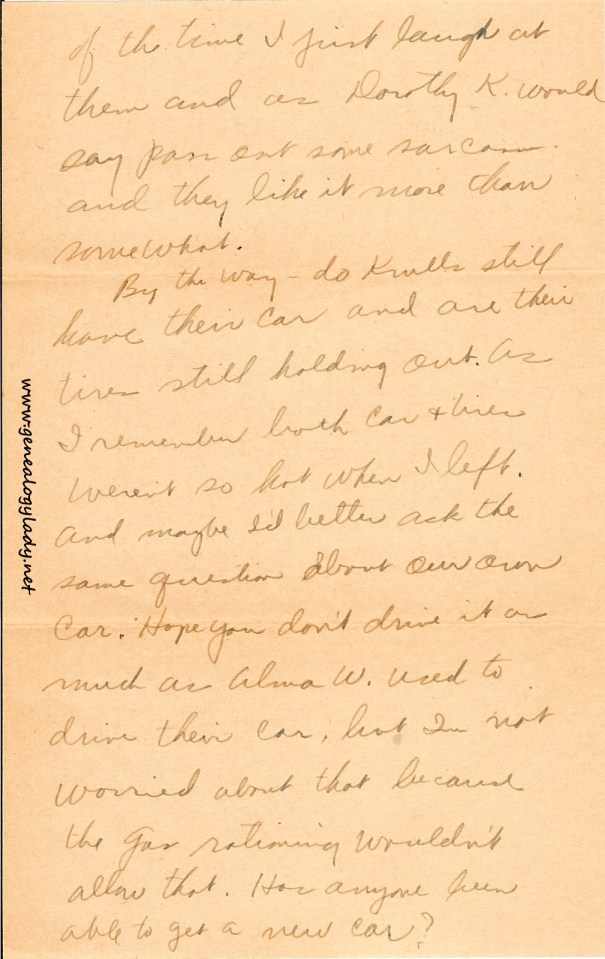 of the time I just laugh at
them and as Dorothy K. would
say pass out some sarcasm.
and they like it more than
somewhat.
By the way – do Krulls still
have their car and are their
tires still holding out. As
I remember both car & tires
weren't so hot when I left.
And maybe I'd better ask the
same question about our own
car. Hope you don't drive it as
much as Alma W. used to
drive their car, but I'm not
worried about that because
the gas rationing wouldn't
allow that. Has anyone been
able to get a new car?
www.genealogylady.net